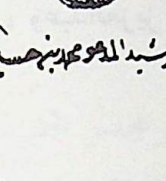 رشيد المدعو محمد بن حسين